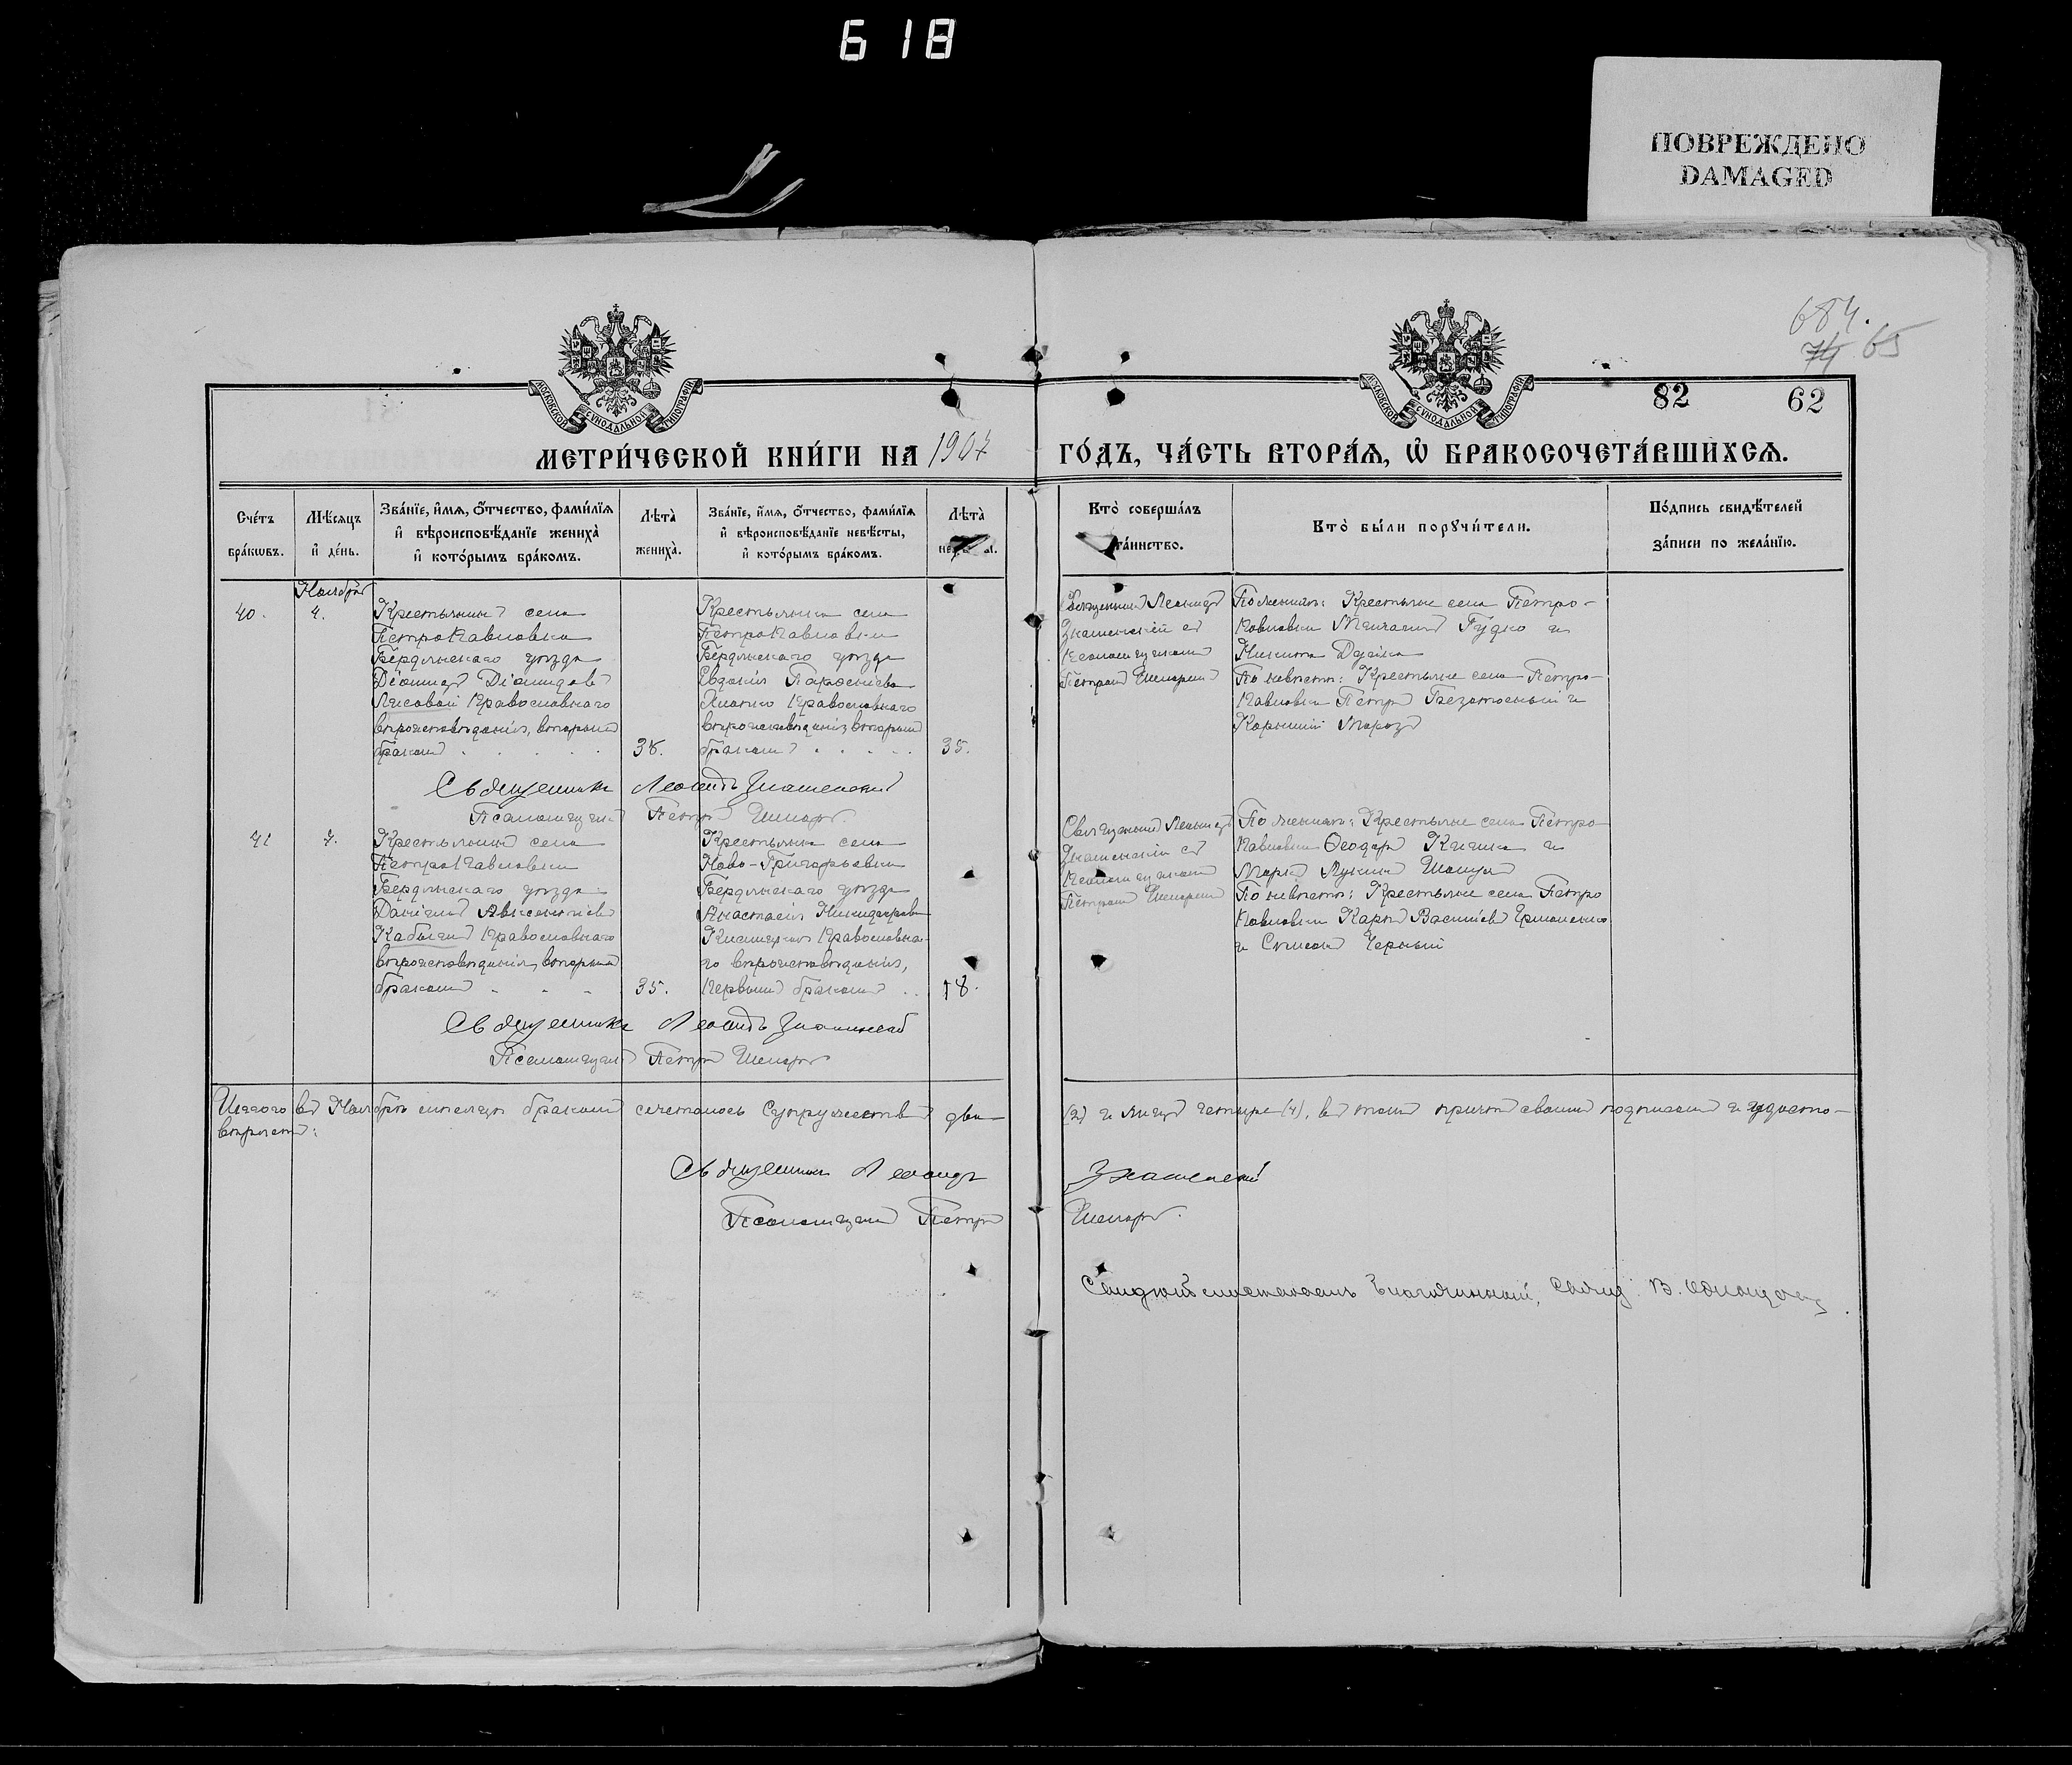 618
ПОВРЕЖДЕНО
DAMAGED
684.
74 65
82 62
МОСКОВСКОЙ СѴНОДАЛЬНОЙ ТИПОГРАФІИ
МОСКОВСКОЙ СѴНОДАЛЬНОЙ ТИПОГРАФІИ
МЕТРИ́ЧЕСКОЙ КНИ́ГИ НА 1907 ГО́ДЪ, ЧА́СТЬ ВТОРА́Ѧ, Ѡ҆ БРАКОСОЧЕТА́ВШИХСѦ.
Сче́тъ бра́кѡвъ.
Мѣ́сяцъ и҆ де́нь.
Зва́нїе, и҆́мѧ, ѻ҆́тчество, фами́лїѧ
и҆ вѣроисповѣ́данїе жениха̀
и҆ кото́рымъ бра́комъ.
Лѣта̀ жениха̀.
Зва́нїе, и҆́мѧ, ѻ҆́тчество, фами́лїѧ
и҆ вѣроисповѣ́данїе невѣ́сты,
и҆ кото́рымъ бра́комъ.
Лѣта̀
Кто̀ соверша́лъ
та́инство.
Кто̀ бы́ли порꙋчи́тели.
По́дпись свидѣ́телей
за́писи по жела́нїю.
Ноября
40. 4.
Крестьянинъ села
Петропавловки
Бердянскаго уѣзда
Діомидъ Діомидовъ
Лисовой православнаго
вѣроисповѣданія, вторымъ
бракомъ 38.
Крестьянка села
Петропавловки
Бердянскаго уѣзда
Евдокія Парѳеніева
православнаго
вѣроисповѣданія, вторымъ
бракомъ 35.
Священникъ Леонидъ
Знаменскій съ
псаломщикомъ
Петромъ
По женихѣ: Крестьяне села Петро-
павловки Гудко и
Никита
По невѣстѣ: Крестьяне села Петро-
павловки Петръ и
Морозъ
Священникъ Леонидъ Знаменскій
Псаломщикъ Петръ
41 7.
Крестьянинъ села
Петропавловки
Бердянскаго уѣзда
Даніилъ Авксентіевъ
православнаго
вѣроисповѣданія, вторымъ
бракомъ 35.
Крестьянка села
Ново-Григорьевки
Бердянскаго уѣзда
Анастасія Никифорова
православна-
го вѣроисповѣданія,
первымъ бракомъ 18.
Священникъ Леонидъ
Знаменскій съ
псаломщикомъ
Петромъ
По женихѣ: Крестьяне села Петро-
павловки Ѳеодоръ и
Маркъ
По невѣстѣ: Крестьяне села Петро
павловки Карпъ Василіевъ Ермоленко
и Симеонъ Черный
Священникъ Леонидъ Знаменскій
Псаломщикъ Петръ
Итого въ Ноябрѣ мѣсяцѣ бракомъ сочеталось супружествъ два— (2) и лицъ четыре (4), въ томъ причтъ своимъ подписомъ и удосто-
вѣряетъ:
Священникъ Леонидъ Знаменскій
Псаломщикъ Петръ
Благочинный, Свящ. В.